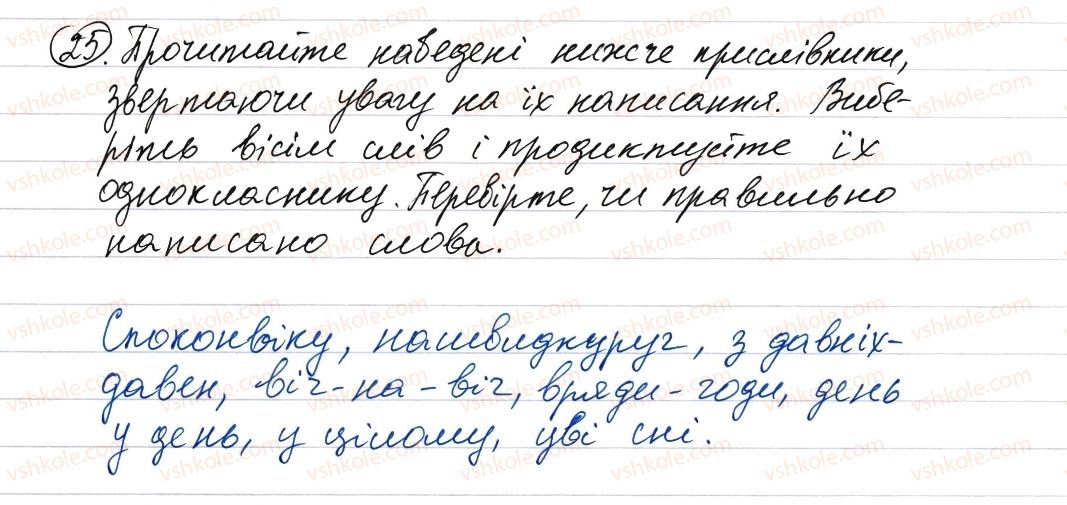 25. Прочитайте наведені нижче прислівники,
звертаючи увагу на їх написання. Вибе-
ріть вісім слів і продиктуйте їх
однокласнику. Перевірте, чи правильно
написано слова.
Споконвіку, нашвидкуруч, з давніх-
давен, віч-на-віч, вряди-годи, день
у день, у цілому, уві сні.